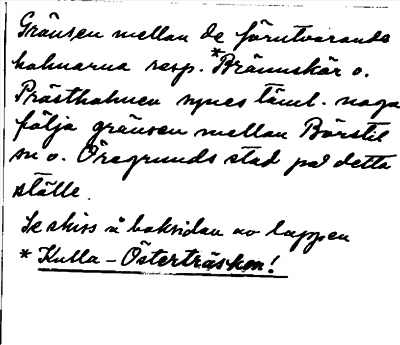 Gränsen mellan de förutvarande
holmarna resp. *Brännskär o.
Prästholmen synes täml. noga
följa gränsen mellan Börstil
sn o. Öregrunds stad på detta
ställe.
Se skiss å baksidan av lappen
* Kulla-Österträsken!